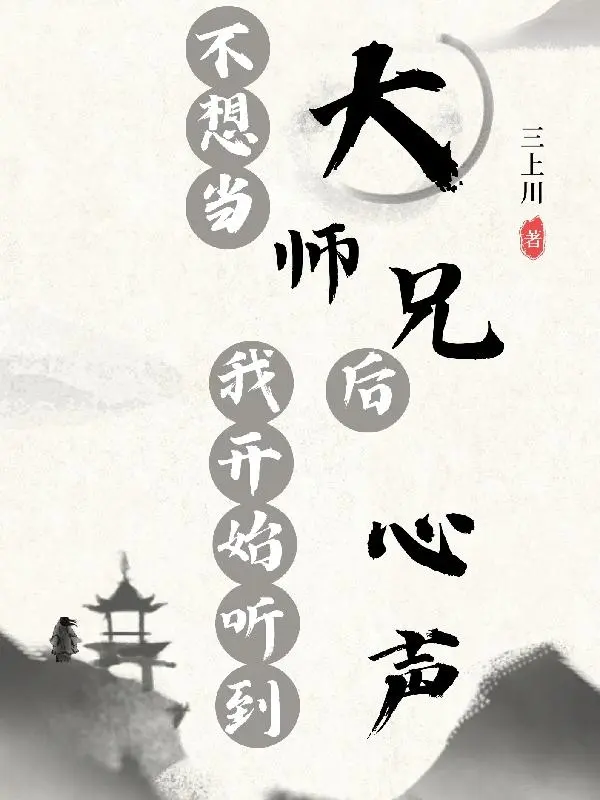 不想当
大师兄
后
我开始听到
心声
三上川
著